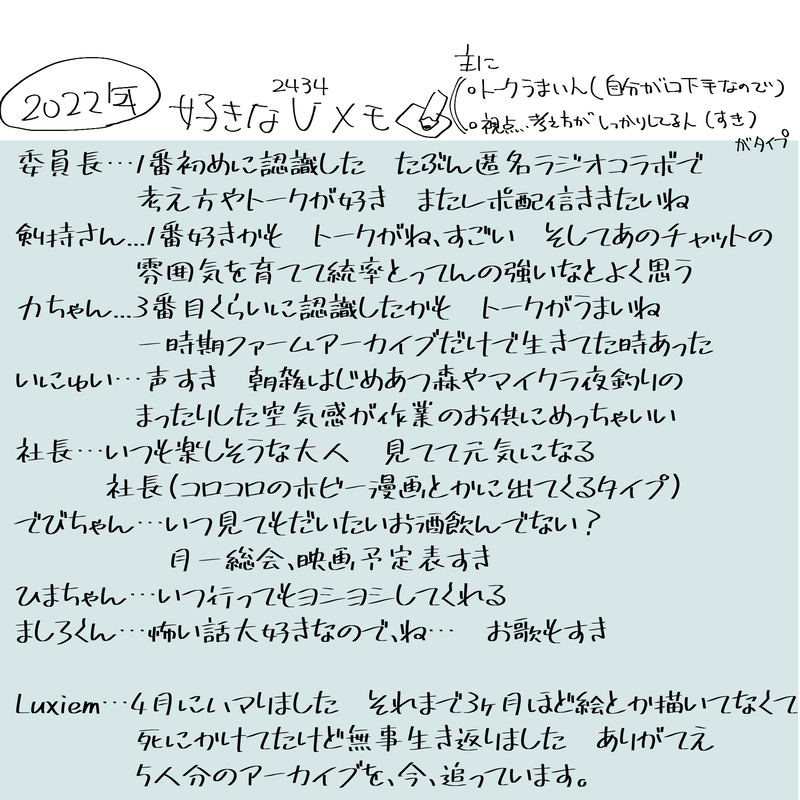 2022年 好きなV メモ
2434
主に
。トークうまいん(自分が口下手なので)
。視点、考え方がしっかりしてる人(すき)
がタイプ
委員長…1番初めに認識した たぶん匿名ラジオコラボで
考え方やトークが好き またレポ配信ききたいね
剣持さん…1番好きかも トークがね、すごい そしてあのチャットの
雰囲気を育てて統率とってんの強いなとよく思う
力ちゃん…3番目くらいに認識したかも トークがうまいね
一時期ファームアーカイブだけで生きてた時あった
いにゅい…声すき 朝雑はじめあつ森やマイクラ夜釣りの
まったりした空気感が作業のお供にめっちゃいい
社長…いつも楽しそうな大人 見てて元気になる
社長(コロコロのホビー漫画とかに出てくるタイプ)
でびちゃん…いつ見てもだいたいお酒飲んでない?
月一総会、映画予定表すき
ひまちゃん…いつ行ってもヨシヨシしてくれる
ましろくん…怖い話大好きなので、ね… お歌もすき
Luxiem…4月にハマりました それまで3ヶ月ほど絵とか描いてなくて
死にかけてたけど無事生き返りました ありがてえ
5人分のアーカイブを、今、追っています。